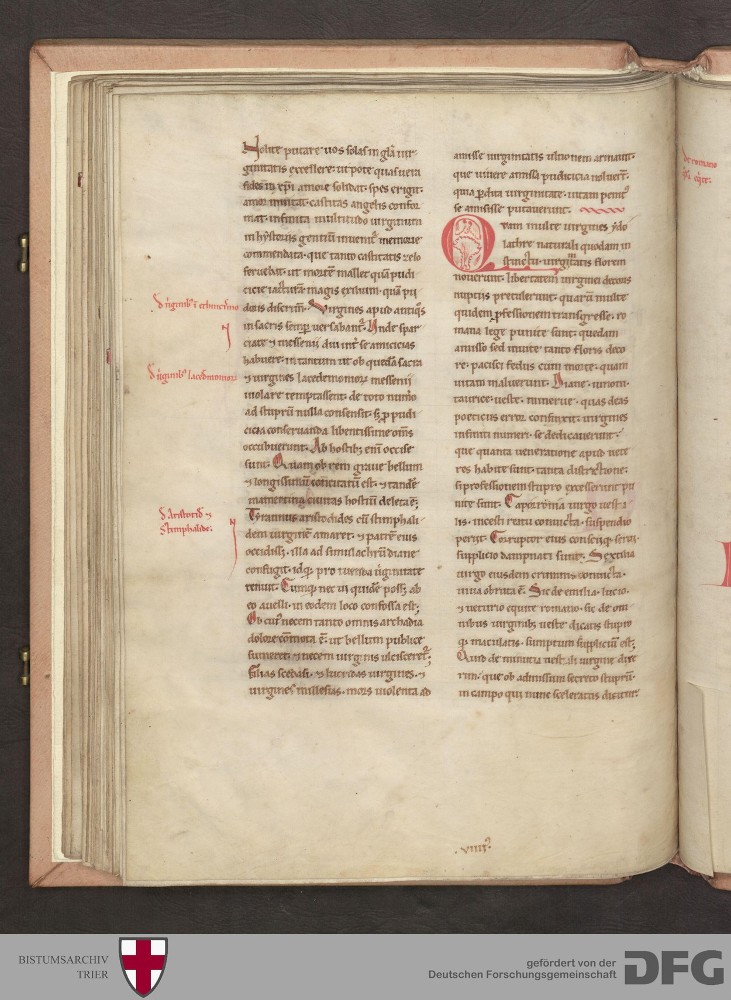 Nolite putare uos solas in gl̄a uir
ginitatis excellere· ut pote quas uera
fides in xp̄i amore solidat· spes erigit·
amor inuitat· castitas angelis confor
mat· infinita multitudo uirginum
in hystoriis gentiū inuenit᷑ memorie
commendata· que tanto castitatis zelo
feruebat· ut mortē mallet quā pudi
cicie iacturā· magis exitium· quā pu
doris discrim̄· Virgines apud antiq̄s
in sacris semp̲ uersabant᷑· Unde spar
ciate ⁊ messenii diu int᷑ se amicicias
habuere· in tantum ut ob quedā sacra
⁊ uirgines lacedemonioꝝ messenii
uiolare temptassent· de toto num̄o
ad stuprū nulla consensit· sꝫ p̲ pudi
cicia conseruanda libentissime om̄s
occubuerunt· Ab hostibꝫ enī occise
sunt· Quam ob rem graue bellum
⁊ longissimū concitatū est· ⁊ tandē
mamertina ciuitas hostiū deleta ē·
Tyrannus aristoclides cū stimphali
dem uirginē amaret· ⁊ patrē eius
occidiss&· illa ad simulachrū diane
confugit· idqꝫ pro tuenda uirginitate
tenuit· Cumqꝫ nec ui quidē poss& ab
eo auelli· in eodem loco confossa est·
Ob cui᷒ necem tanto omnis archadia
dolore cōmota ē· ut bellum publice
sumeret· ⁊ necem uirginis ulcisceret᷑·
filias scedasi· ⁊ lucridas uirgines· ⁊
uirgines milesias· mors uiolenta ad
d̄ uirginibꝰ
d̄ uirginibꝰ lacedemonioꝝ
d̄ Aristotid̄ ⁊
Stimphalide·
amisse uirginitatis ultionem armauit·
que uiuere amissa pudicicia noluerī·
quia p̲dita uirginitate· uitam penit᷒
se amisisse putauerunt·
Quam multe uirgines ydo
lachre naturali quodam in
stinctu· uirginitatis florem
nouerunt· libertatem uirginei decoris
nuptiis pretulerunt· quarū multe
quidem p̲fessionem transgresse· ro
mana lege punite sunt· quedam
amisso sed inuite tanto floris deco
re· pacisci fedus cum morte· quam
uitam maluerunt· Diane· iunoni·
taurice· ueste· minerue· quas deas
poeticus error confinxit· uirgines
infiniti numeri· se dedicauerunt·
que quanta ueneratione apud uete
res habite sunt· tanta districtione·
si professionem stupro excesserunt pu
nite sunt· Caparronia uirgo uesta
lis· incesti reatu conuicta· suspendio
perijt· Corruptor eius consciiqꝫ serui
supplicio dampnati sunt· Sextilia
uirgo eiusdem criminis conuicta·
uiua obruta ē· Sic de emilia· lucio·
⁊ ueturio equite romano· sic de om
nibus uirginibꝫ ueste dicatis stupro
qꝫ maculatis· sumptum suppliciū est·
Quid de minutia uestali uirgine dixe
rim· que ob admissum secreto stuprū·
in campo qui nunc sceleratus dicitur·
viiii᷒
BISTUMSARCHIV
TRIER
gefördert von der
Deutschen Forschungsgemeinschaft
DFG